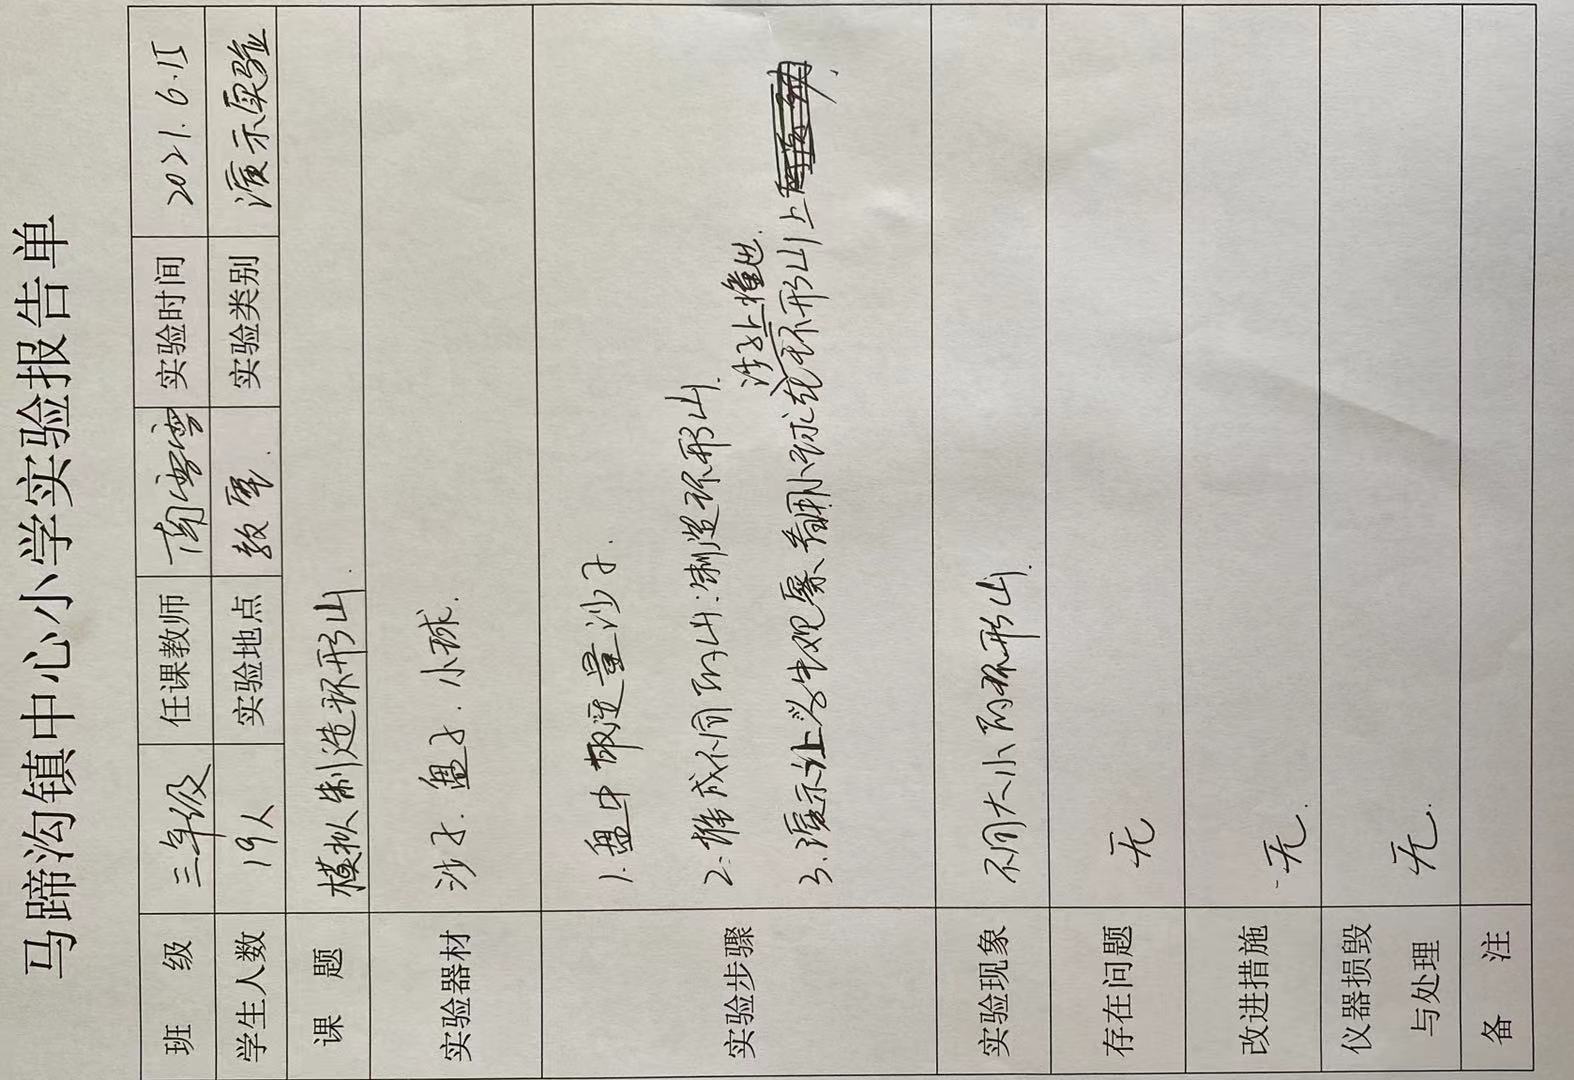 马蹄沟镇中心小学实验报告单
班 级 三年级 任课教师 实验时间 2021.6.15
学生人数 19人 实验地点 教室. 实验类别 演示实验
课 题 模拟制造环形山.
实验器材 沙子.盘子.小球.
实验步骤
1.盘中取适量沙子.
2.堆成不同的山:制造环形山.
沙子上撞进.
3.演示让学生观察 用小球在环形山上
实验现象 不同大小的环形山.
存在问题 无
改进措施 无.
仪器损毁与处理 无.
备 注